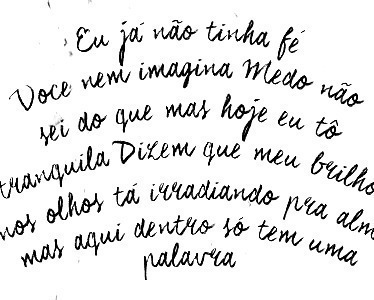 Eu já não tinha fé
Voce nem imagina Medo não
sei do que mas hoje eu tô
tranquila Dizem que meu brilho
nos olhos tá irradiando pra alm
mas aqui dentro só tem uma
palavra